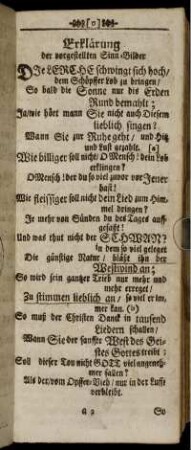 [o]
Erklärung
der vorgestellten Sinn-Bilder
DJe LERCHE schwingt sich hoch/
dem Schöpffer Lob zu bringen/
So bald die Sonne nur das Erden
Rund bemahlt;
Ja/wie hört man Sie nicht auch Diesem
lieblich singen?
Wann Sie zur Ruhe geht/ und Hitz
und Lust zahlt. [a]
Wie billiger soll nicht/ O Mensch! dein Lob
erklingen?
O Mensch! der du so viel zuvor vor Jener
hast!
Wie fleissiger soll nicht dein Lied zum Him-
mel dringen?
Je mehr von Sünden du des Tages auff-
gefaßt!
Und was thut nicht der SCHWAN?
in dem so viel geleget
Die günstige Natur/ bläßt ihn der
Westwind an;
So wird sein gantzer Trieb nur mehr und
mehr erreget/
Zu stimmen lieblich an/ so viel er im-
mer kan. (b)
So muß der Christen Danck in tausend
Liedern schallen/
Wann Sie der sanffte West des Gei-
stes Gottes treibt:
Soll dieser Ton nicht GOTT viel angeneh-
mer fallen?
Als der, vom Opffer-Vieh/ nur in der Lufft
verbleibt.
a 2 So